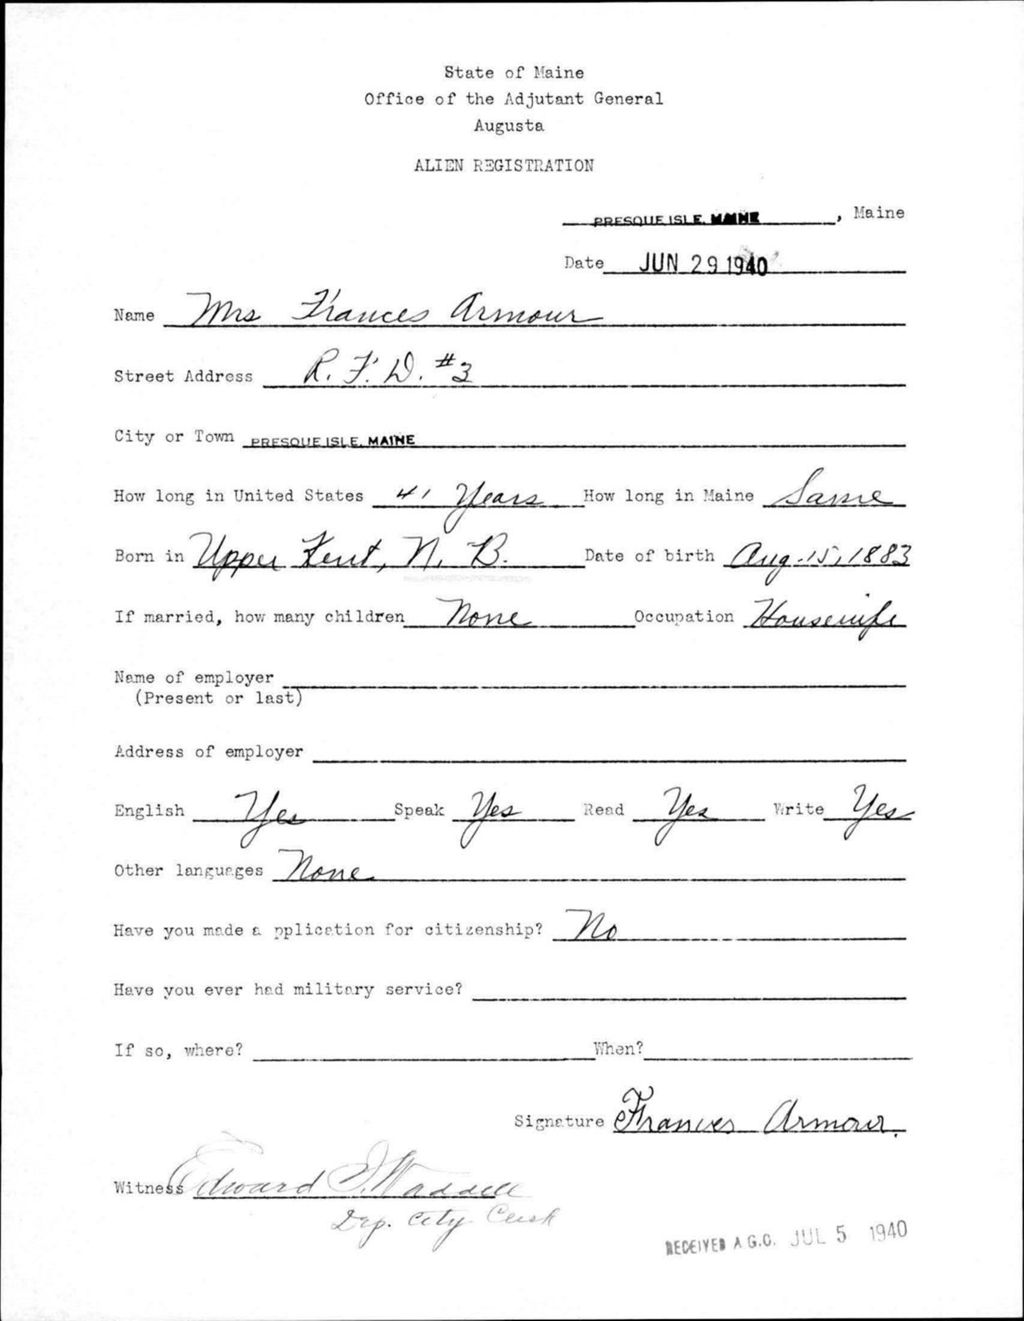 State of Maine
Office of the Adjutant General
Augusta
ALIEN REGISTRATION
PRESQUE ISLE, MAINE, Maine
Date JUN 29 1940
Name Mrs Frances Armour
Street Address R. F. D. #3
City or Town PRESQUE ISLE, MAINE
How long in United States 41 Years How long in Maine Same
Born in Upper Kent, N. B. Date of birth Aug. 15, 1883
If married, how many children None Occupation Housewife
Name of employer
(Present or last)
Address of employer
English Yes Speak Yes Read Yes Write Yes
Other languages None
Have you made a pplication for citizenship? No
Have you ever had military service?
If so, where? When?
Signature Frances Armour.
Witness Edward I. Waddell
Dep. City Clerk
RECEIVED A.G.O. JUL 5 1940